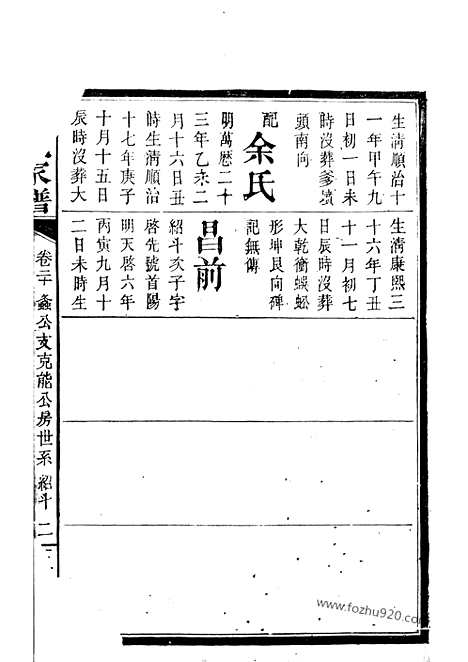 生清順治十
一年甲午九
日初一日未
時沒葬爹墳
頭南向
配余氏
明萬曆二十
三年乙未二
月十六日丑
時生清順治
十七年庚子
十月十五日
辰時沒葬大
生清康熙三
十六年丁丑
十一月初七
日辰時沒葬
大乾衝蜈蚣
形坤艮向碑
記無傳
昌前
紹斗亥子字
啓先號首陽
明天啓六年
丙寅九月十
二日未時生
家譜
卷二十 螽公支克能公房世系 紹斗 二
www.fozhu920.com